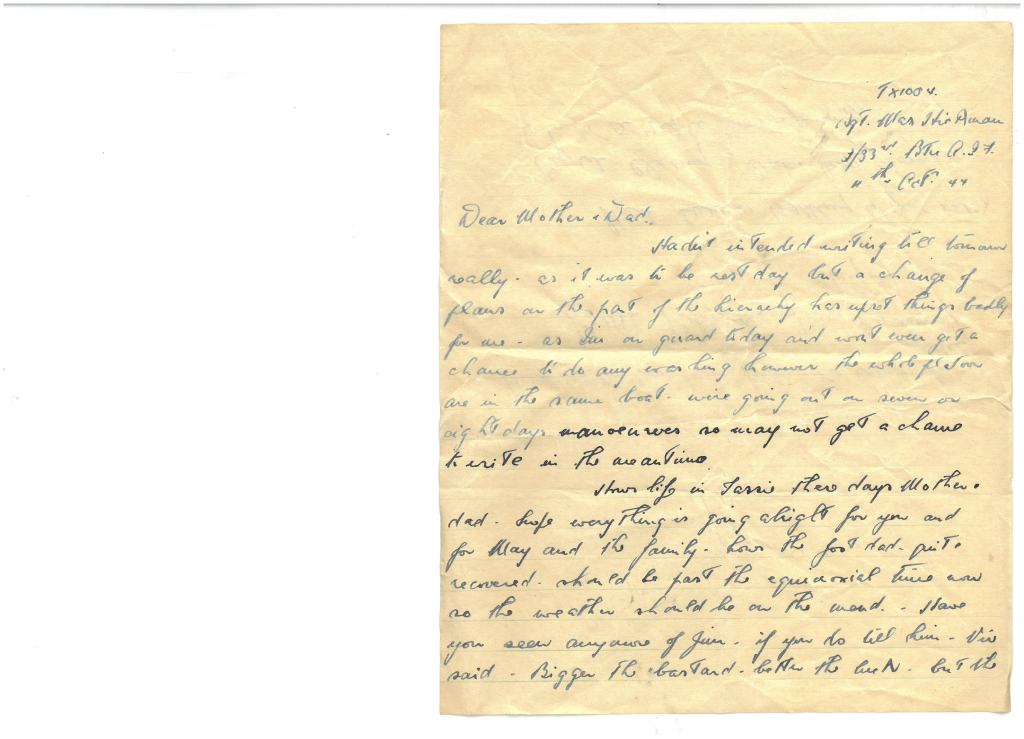 TX1004.
Sgt. Max Hickman
2/33rd Btn A.I.F.
11th Oct. 44
Dear Mother & Dad.
Hadn't intended writing till tomorrow
really - as it was to be rest day but a change of
plans on the part of the hierarchy has upset things badly
for me - as I'm on guard today and wont even get a
chance to do any washing however the whole platoon
are in the same boat. we're going out on seven or
eight days manoeuvres so may not get a chance
to write in the meantime.
Hows life in Tassie these days Mother &
dad. hope everything is going alright for you and
for May and the family. hows the foot dad. quite
recovered. should be past the equinoxial time now
so the weather should be on the mend. - Have
you seen anymore of Jim. if you do tell him - Viv
said - Bigger the bastard. better the luck. but the